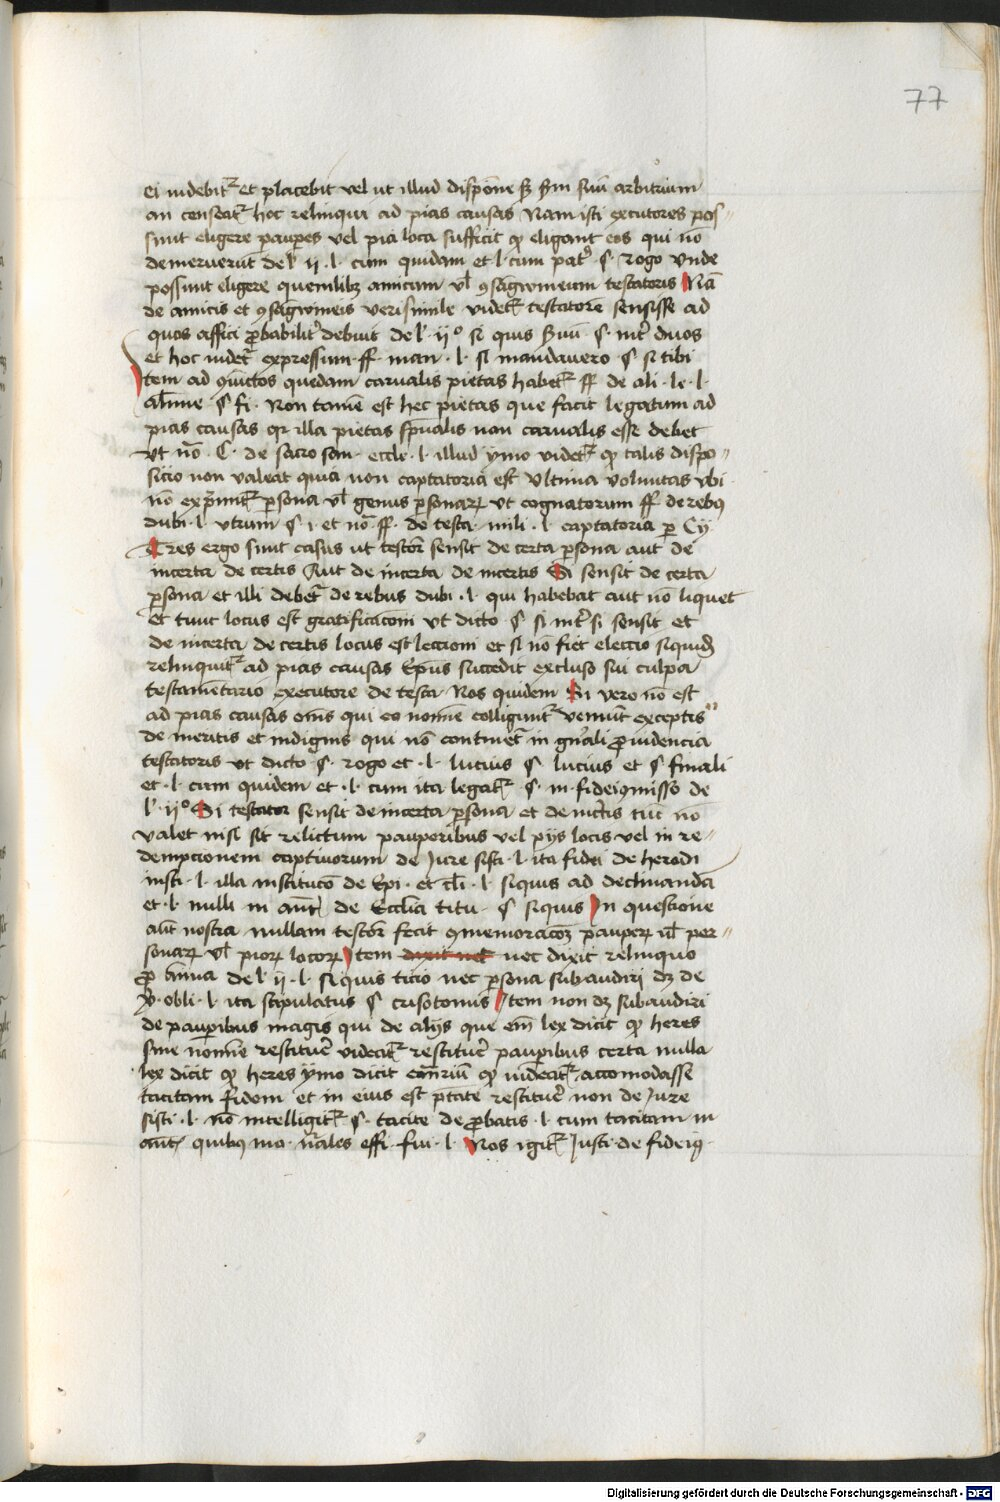 77
ei videbit᷑ et placebit vel ut illud dispone᷑ ẜm suū arbitrium
an censeat᷑ hoc relinqui ad pias causas Nam isti executores pos〃
sunt eligere pauꝑes vel pia loca sufficit ꝙ eligant eos qui nō
demeruerūt de l͛ ij · l · cum quidam et l · cum pat͛ · § · rogo Unde
possunt eligere quemlibꝫ amicum vl̛ ꝯsāgwineum testatoris Nā
de amicis et ꝯsāgwineis verisimile videt᷑ testatorē sensisse ad
quos affici ꝓbabilit͛ debuit de l͛ · ijº si quis ẜvū · § · int͛ duos
et hoc videt᷑ expressum · ff · man · l · si mandavero · § · si tibi
Item ad ꝯiūctos quedam carnalis pietas habet᷑ ff de ali · le · l ·
alūne · § fi · Non tamē est hec pietas que facit legatum ad
pias causas qr illa pietas sp̄ualis non carnalis esse debet
vt nō · C · de sacro san · eccle · l · illud ymo videt᷑ ꝙ talis dispo〃
sicio non valeat quia non captatoria est vltima voluntas vbi
nō exp̄mit᷑ ꝑsona vl̛ genus ꝑsonaꝝ vt cognatorum ff de rebꝰ
dubi · l · vtrum · § i · et nō · ff · de testa · mili · l · captatoria ꝑ Cy
Tres ergo sunt casus ut testor̄ sensit de certa ꝑsona aut de
incerta de certis Aut de incerta de incertis Si sensit de certa
ꝑsona et illi debet᷑ de rebus dubi · l · qui habebat aut nō liquet
et tunc locus est gratificacōni vt dicto · § · si int͛ si sensit et
de incerta de certis locus est leccioni et si nō fiet electio siquid͛
relinquit᷑ ad pias causas Ep̄us succedit excluso sui culpa
testamētario executore de testa · Nos quidem Si vero nō est
ad pias causas om̄s qui eo nomīe colligunt᷑ veniūt exceptis
de meritis et indignis qui nō continet᷑ in gn̄ali ꝓuidencia
testatoris vt dicto · § · rogo et · l · lucius § lucius et § finali
et · l · cum quidem et · l · cum ita legat᷑ · § · in fideiꝯmisso de
l͛ · ijº Si testator sensit de incerta ꝑsona et de incertis tūc nō
valet nisi sit relictum pauperibus vel pijs locis vel in re〃
dempcionem captivorum de Jure fisci · l · ita fidei de heredū
insti · l · illa institucō de Epi · et cl̄i · l · siquis ad declinandā
et · l · nulli in aut̄ de Ecclīa titu · § siquis In questione
aūt nostra nullam testor̄ fecit ꝯmemoracōꝫ pauꝑeꝝ vl̛ per〃
sonaꝝ vl̛ pioꝝ locoꝝ Item dixit nec nec dixit relinquo
ꝓ anīma de l͛ ij · l · siquis titio nec ꝑsona subaudiri dꝫ de
v͛ · obli · l · ita stipulatus § crisotomis Item non dꝫ subaudiri
de pauꝑibus magis qui de alijs que em̄ lex dicit ꝙ heres
sine nomīe restituē᷑ videat᷑ restituē᷑ pauꝑibus certa nulla
lex dicit ꝙ heres ymo dicit ꝯ̄triū ꝙ videat᷑ accomodasse
tacitam fidem et in eius est ptāte restituē᷑ non de Jure
fisci · l · nō intelligit᷑ § · tacite de ꝓbatis · l · cum tacitam in
aut̄ quibꝰ mo · nāles effi · sui · l · Nos igit᷑ Justi · de fideiꝯ ·
Digitalisierung gefördert durch die Deutsche Forschungsgemeinschaft - DFG